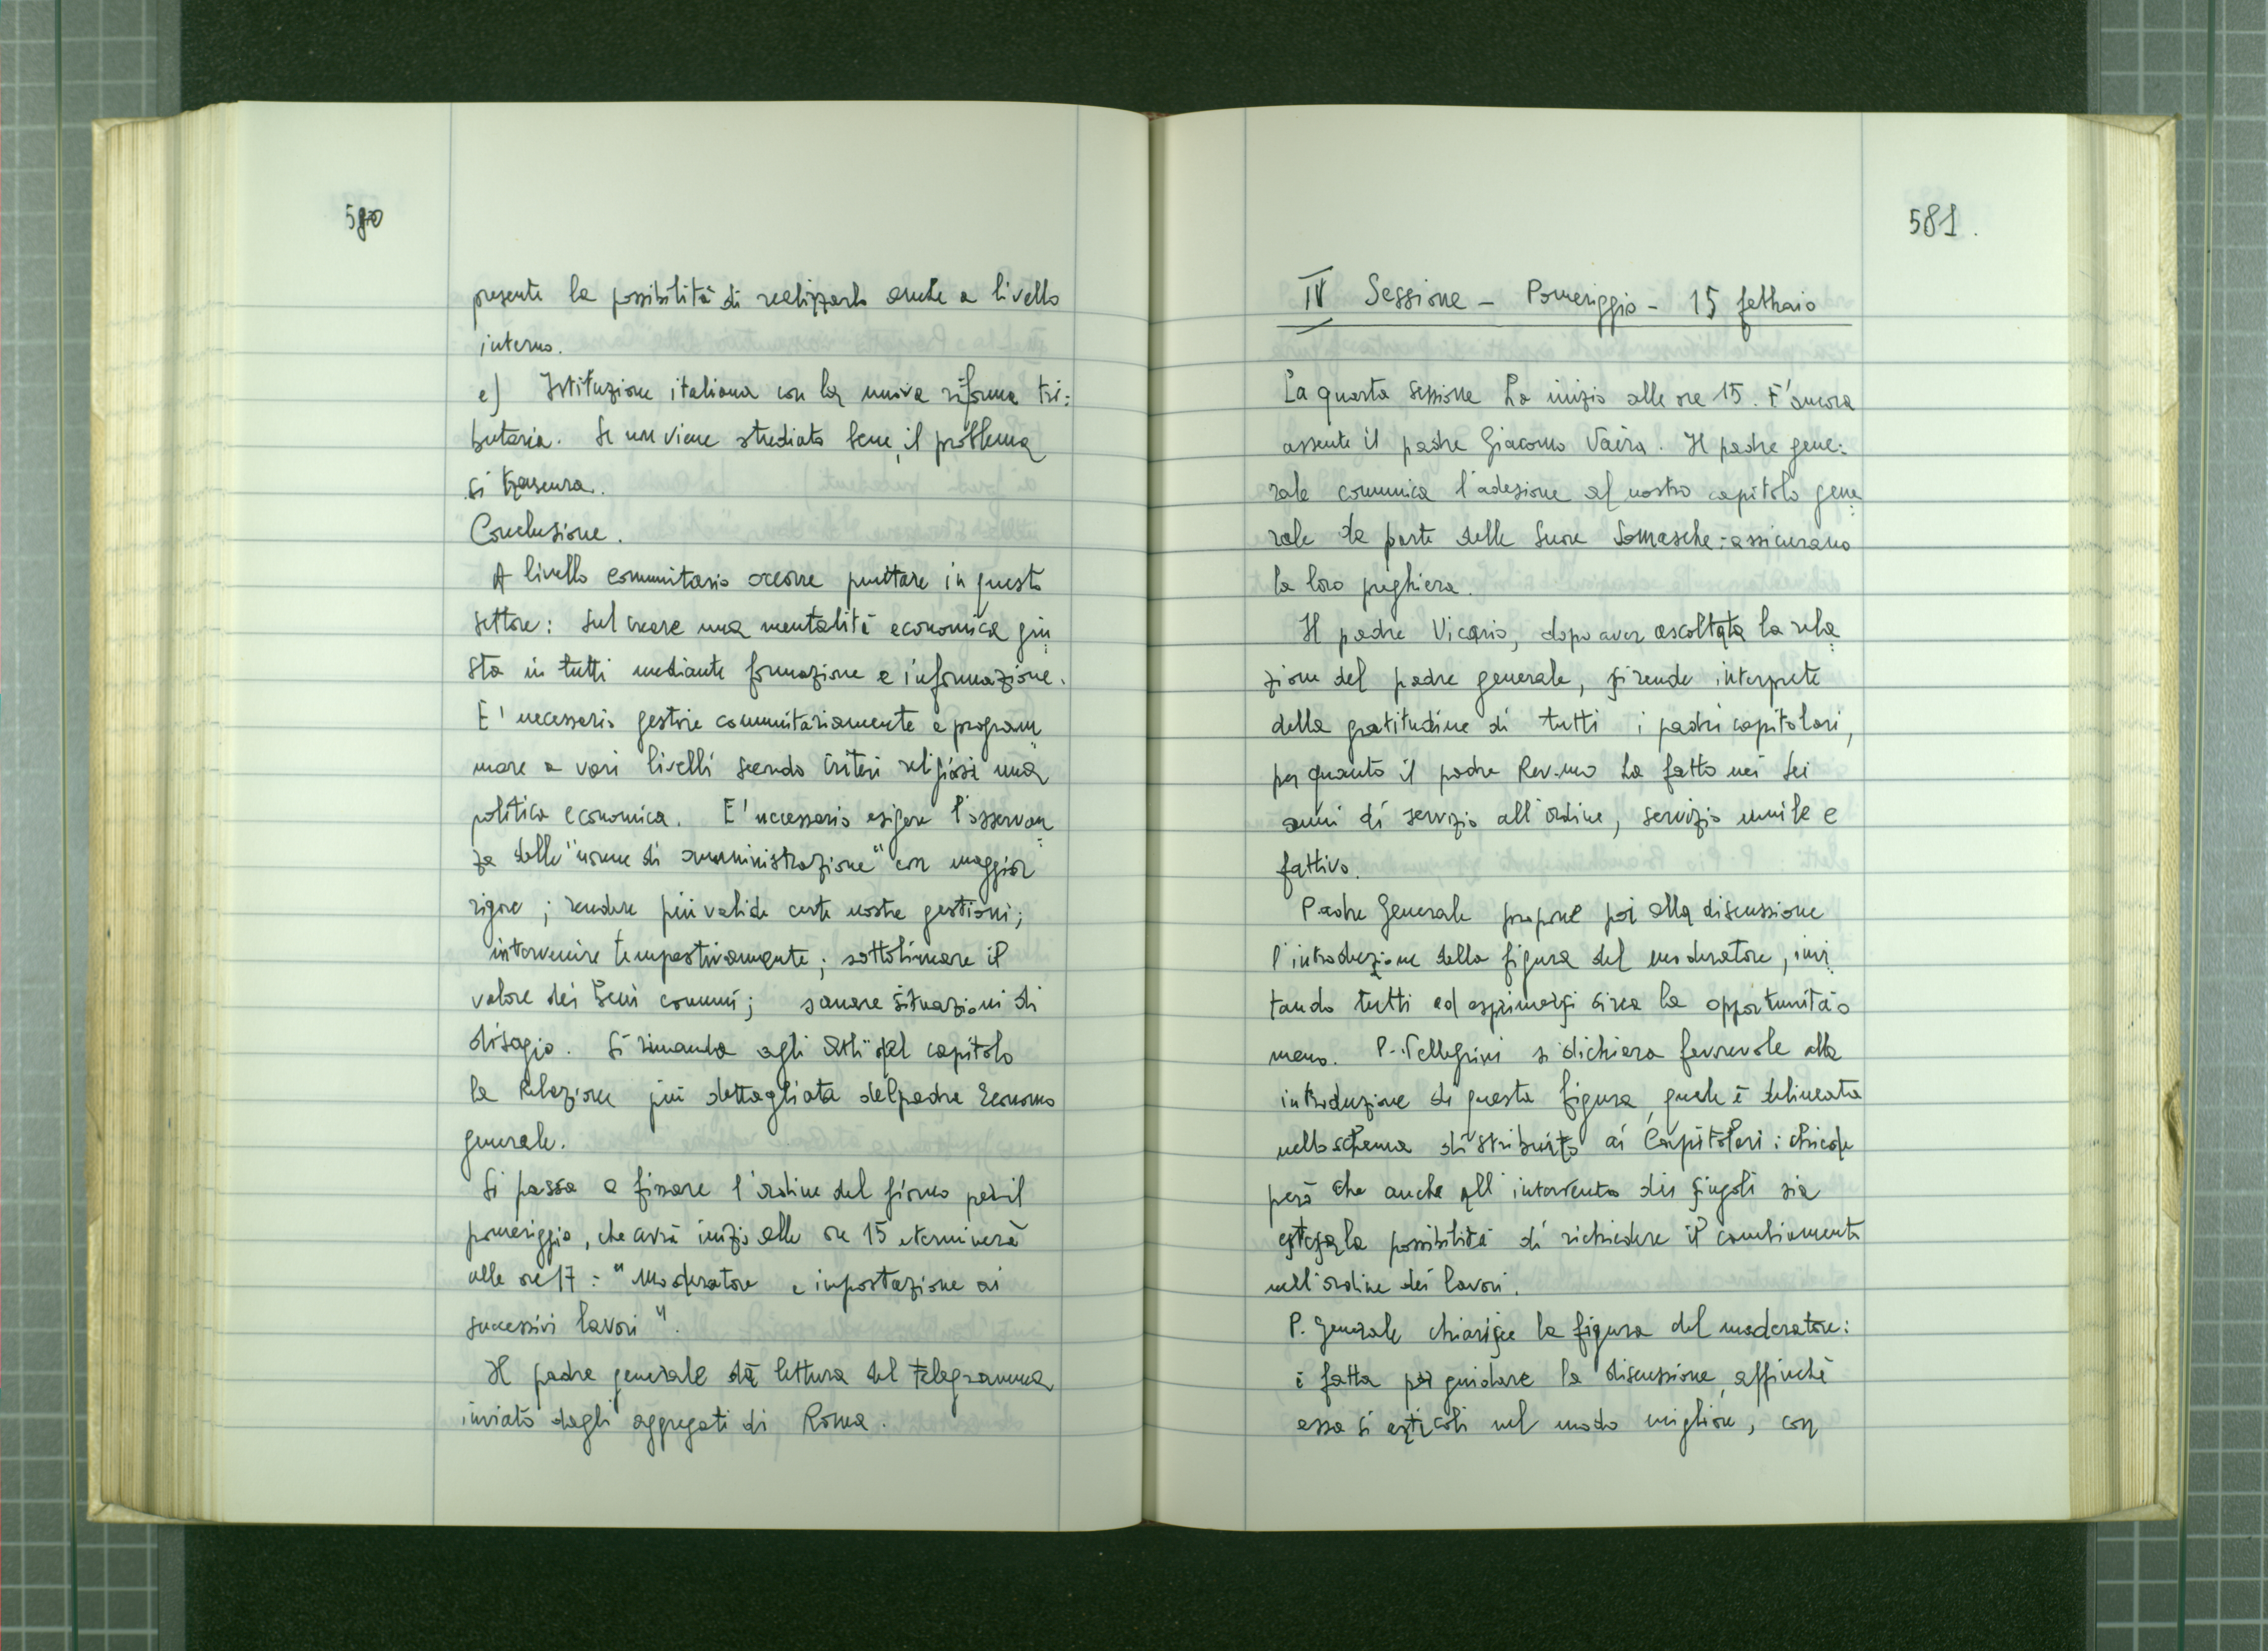 580
presente la possibilità di realizzarlo anche a livello
interno.
e) Istituzione italiana con la nuova riforma tri=
butaria. Se non viene studiato bene, il problema
si trascura.
Conclusione.
A livello comunitario occorre puntare in questo
settore: sul creare una mentalità economica giu=
sta in tutti mediante formazione e informazione.
E' necessario gestire comunitariamente e program=
mare a vari livelli secondo criteri religiosi una
politica economica. E' necessario esigere l'osservan=
za delle "norme di amministrazione" con maggior
rigore; rendere più valide certe nostre gestioni;
intervenire tempestivamente; sottolineare il
valore dei beni comuni; sanare situazioni di
disagio. Si rimanda agli Atti del capitolo
la Relazione più dettagliata del padre Economo
generale.
Si passa a fissare l'ordine del giorno per il
pomeriggio, che avrà inizio alle ore 15 e terminerà
alle ore 17: "Moderatore e impostazione ai
successivi lavori".
Il padre generale dà lettura del telegramma
inviato dagli aggregati di Roma.
581.
IV Sessione - Pomeriggio - 15 febbraio
La quarta sessione ha inizio alle ore 15. E' ancora
assente il padre Giacomo Vaira. Il padre gene=
rale comunica l'adesione al nostro capitolo gene=
rale da parte delle Suore Somasche: assicurano
la loro preghiera.
Il padre Vicario, dopo aver ascoltata la rela=
zione del padre generale, si rende interprete
della gratitudine di tutti i padri capitolari,
per quanto il padre Rev.mo ha fatto nei sei
anni di servizio all'ordine, servizio umile e
fattivo.
Padre Generale propone poi alla discussione
l'introduzione della figura del moderatore, invi=
tando tutti ad esprimersi circa la opportunità o
meno. P. Pellegrini si dichiara favorevole alla
introduzione di questa figura, quale è delineata
nello schema distribuito ai Capitolari: chiede
però che anche all'intervento dei singoli sia
estesa la possibilità di richiedere il cambiamento
nell'ordine dei lavori.
P. Generale chiarisce la figura del moderatore:
è fatta per guidare la discussione, affinchè
essa si articoli nel modo migliore, con